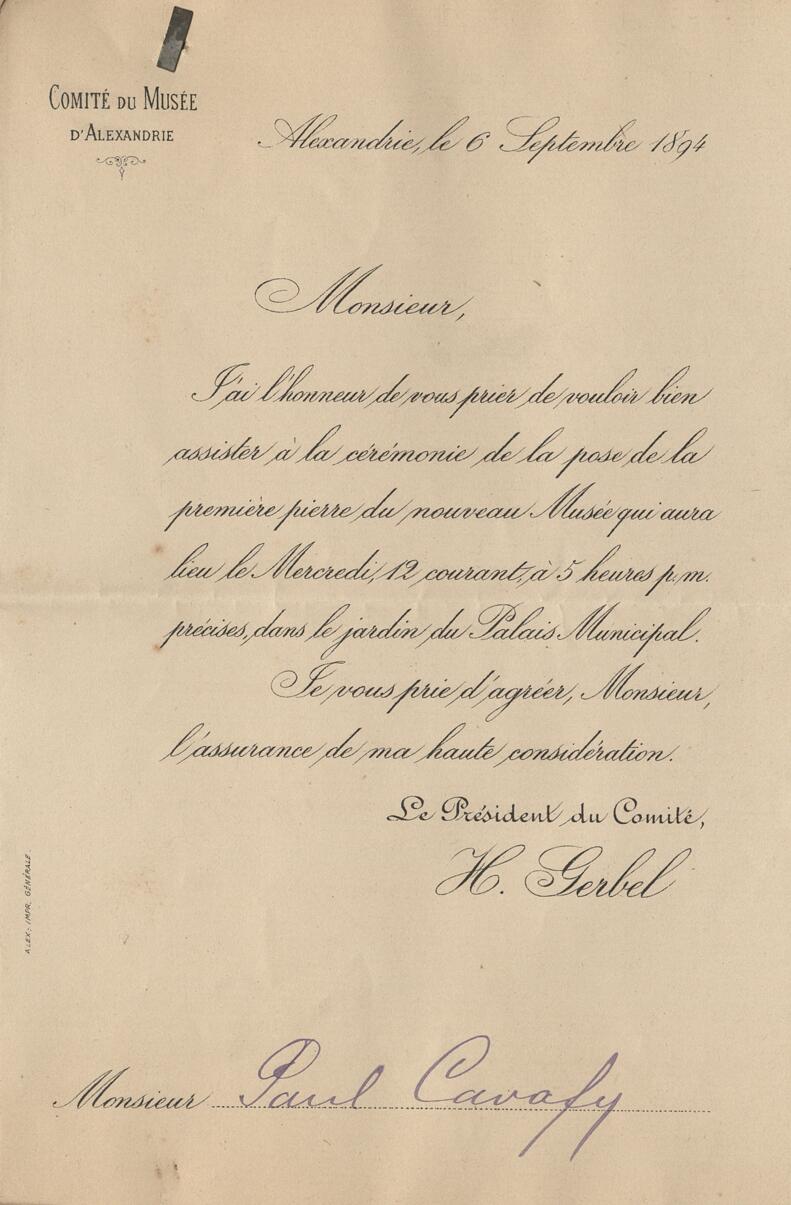 COMITÉ DU MUSÉE
D'ALEXANDRIE
Alexandrie, le 6 Septembre 1894
Monsieur,
J'ai l'honneur de vous prier de vouloir bien
assister à la cérémonie de la pose de la
première pierre du nouveau Musée qui aura
lieu le Mercredi, 12 courant, à 5 heures p.m.
précises, dans le jardin du Palais Municipal.
Je vous prie d'agréer, Monsieur,
l'assurance de ma haute considération.
Le Président du Comité,
H. Gerbel
ALEX. IMPR. GÉNÉRALE.
Monsieur Paul Cavafy